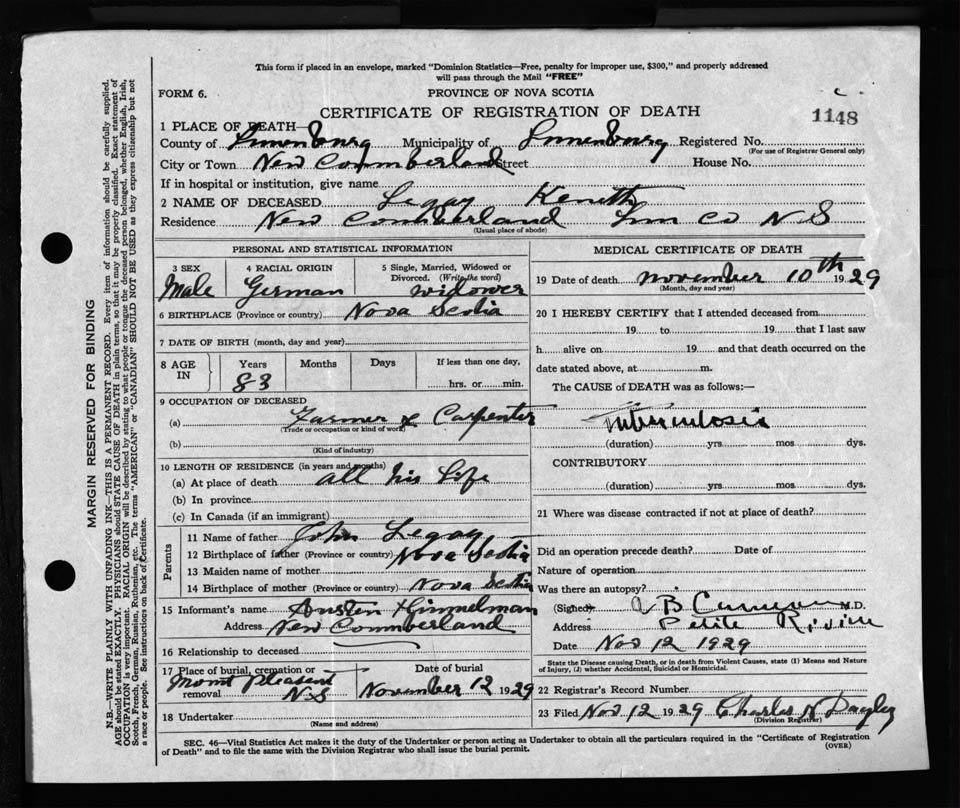 This form if placed in an envelope, marked "Dominion Statistics—Free, penalty for improper use, $300," and properly addressed
will pass through the Mail "FREE"
FORM 6.
PROVINCE OF NOVA SCOTIA
CERTIFICATE OF REGISTRATION OF DEATH
1148
1 PLACE OF DEATH—
County of Lunenburg Municipality of Lunenburg Registered No.
(For use of Registrar General only)
City or Town New Cummberland Street House No.
If in hospital or institution, give name
2 NAME OF DECEASED Legay Keneth
Residence New Comberland Lun Co N S
(Usual place of abode)
PERSONAL AND STATISTICAL INFORMATION
3 SEX 4 RACIAL ORIGIN 5 Single, Married, Widowed or Divorced. (Write the word)
Male German widower
6 BIRTHPLACE (Province or country) Nova Scotia
7 DATE OF BIRTH (month, day and year)
8 AGE IN Years Months Days If less than one day,
83 hrs. or min.
9 OCCUPATION OF DECEASED
(a) Farmer & Carpenter
(Trade or occupation or kind of work)
(b)
(Kind of industry)
10 LENGTH OF RESIDENCE (in years and months)
(a) At place of death all his Life
(b) In province
(c) In Canada (if an immigrant)
Parents
11 Name of father John Legay
12 Birthplace of father (Province or country) Nova Scotia
13 Maiden name of mother
14 Birthplace of mother (Province or country) Nova Scotia
15 Informant's name Austen Himmelman
Address New Commberland
16 Relationship to deceased
17 Place of burial, cremation or removal Date of burial
Mount Pleasent N.S November 12 1929
18 Undertaker
(Name and address)
MEDICAL CERTIFICATE OF DEATH
19 Date of death November 10th 1929
(Month, day and year)
20 I HEREBY CERTIFY that I attended deceased from
19 to 19 that I last saw
h alive on 19 and that death occurred on the
date stated above, at m.
The CAUSE of DEATH was as follows:
Tuberculosis
(duration) yrs. mos. dys.
CONTRIBUTORY
(duration) yrs. mos. dys.
21 Where was disease contracted if not at place of death?
Did an operation precede death? Date of
Nature of operation
Was there an autopsy?
(Signed) B M.D.
Address Petite Riviere
Date Nov 12 1929
State the Disease causing Death, or in death from Violent Causes, state (1) Means and Nature
of Injury, (2) whether Accidental, Suicidal or Homicidal.
22 Registrar's Record Number
23 Filed Nov 12 1929 Charles N
(Division Registrar)
SEC. 46—Vital Statistics Act makes it the duty of the Undertaker or person acting as Undertaker to obtain all the particulars required in the "Certificate of Registration
of Death" and to file the same with the Division Registrar who shall issue the burial permit.
(OVER)
MARGIN RESERVED FOR BINDING
N.B.—WRITE PLAINLY WITH UNFADING INK—THIS IS A PERMANENT RECORD. Every item of information should be carefully supplied.
AGE should be stated EXACTLY. PHYSICIANS should STATE CAUSE OF DEATH in plain terms, so that it may be properly classified. Exact statement of
OCCUPATION is very important. RACIAL ORIGIN will be described by stating to what people or tongue the deceased person belonged, whether English, Irish,
Scotch, French, German, Russian, Ruthenian, etc. The terms "AMERICAN" or "CANADIAN" SHOULD NOT BE USED as they express citizenship but not
a race or people. See instructions on back of Certificate.